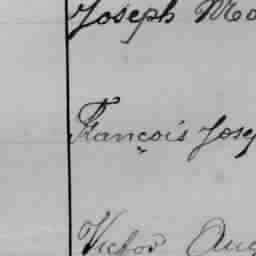 Joseph Mo
François Jose
Victor Aug